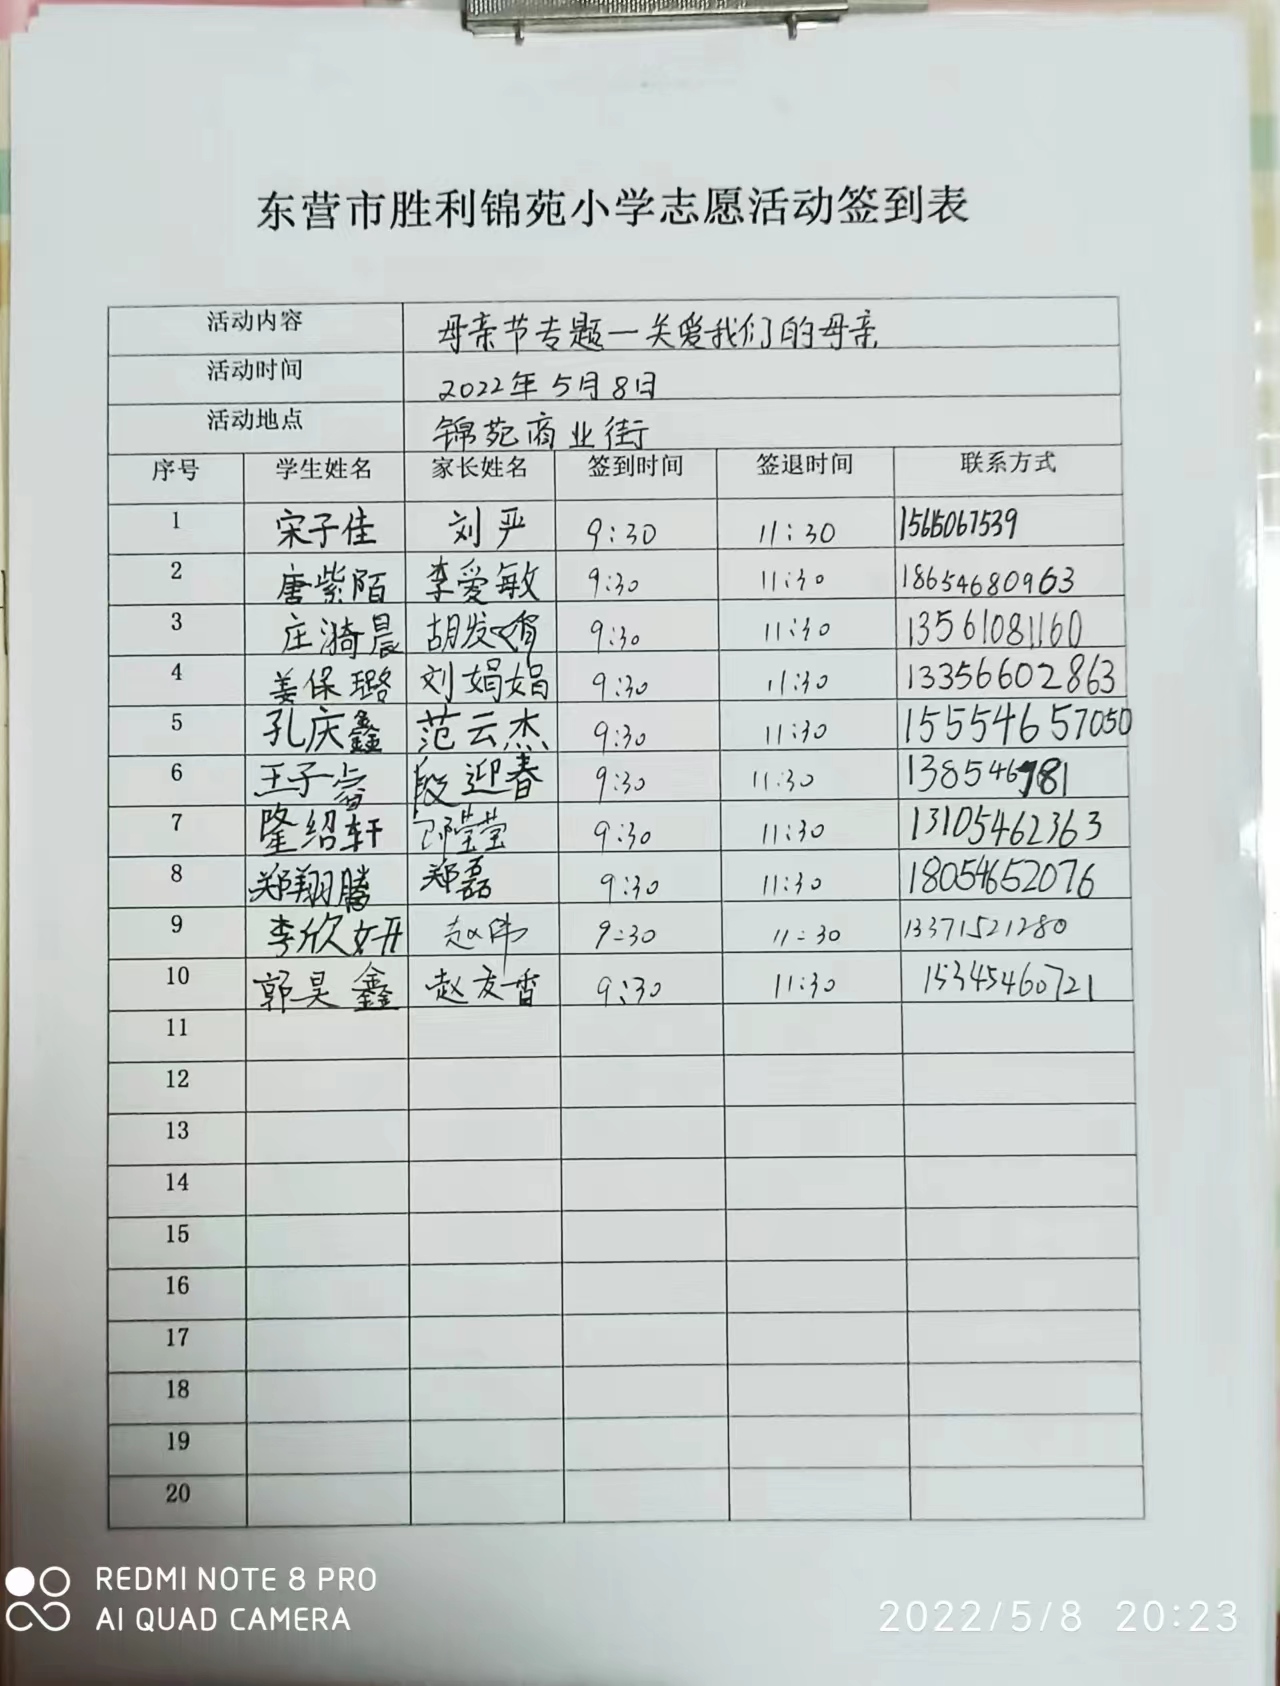 东营市胜利锦苑小学志愿活动签到表
活动内容 母亲节专题一关爱我们的母亲
活动时间 2022年5月8日
活动地点 锦苑商业街
序号 学生姓名 家长姓名 签到时间 签退时间 联系方式
1 宋子佳 刘严 9:30 11:30
2 唐紫陌 李爱敏 9:30 11:30 18654680963
3 庄漪晨 胡发 9:30 11:30 13561081160
4 姜保璐 刘娟娟 9:30 11:30 13356602863
5 孔庆鑫 范云杰 9:30 11:30 15554657050
6 王子睿 段迎春 9:30 11:30
7 隆绍轩 邵莹莹 9:30 11:30 13105462363
8 郑翔腾 郑磊 9:30 11:30 18054652076
9 李欣妍 赵伟 9:30 11:30 13371521280
10 郭昊鑫 赵友香 9:30 11:30 15345460721
11
12
13
14
15
16
17
18
19
20
REDMI NOTE 8 PRO
AI QUAD CAMERA
2022/5/8 20:23